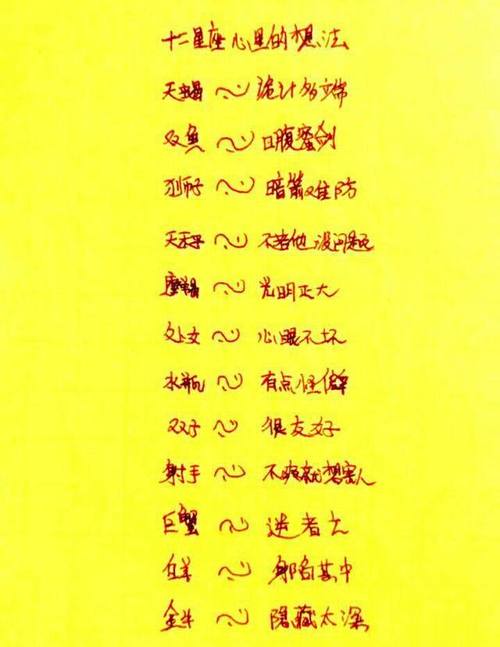 十二星座心里的想法
天蝎~诡计多文常
双鱼~口腹蜜剑
狮子~暗箭难防
天秤~不惹他没问题
摩羯~光明正大
处女~心眼不坏
水瓶~有点怪僻
双子~很友好
射手~不爽就想害人
巨蟹~逆者亡
白羊~身陷其中
金牛~隐藏太深